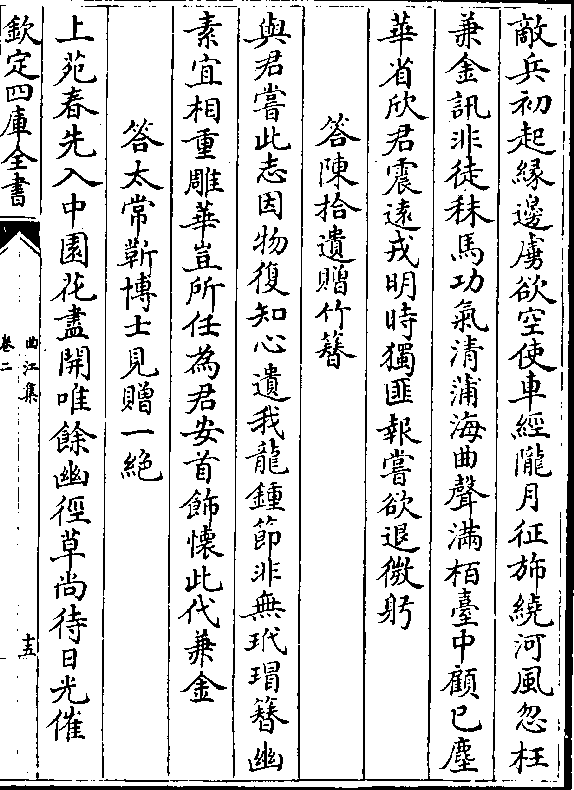 敵兵初起縁邊虜欲空使車經隴月征斾繞河風忽枉
兼金訊非徒秣馬功氣清蒲海曲聲滿栢臺中顧已塵
華省欣君震逺戎明時獨匪報嘗欲退微躬
答陳拾遺贈竹簪
與君嘗此志因物復知心遺我龍鍾節非無玳瑁簪幽
素宜相重雕華豈所任為君安首飾懐此代兼金
答太常靳博士見贈一絶
上苑春先入中園花盡開唯餘幽徑草尚待日光催
欽定四庫全書
曲江集
卷二
十五